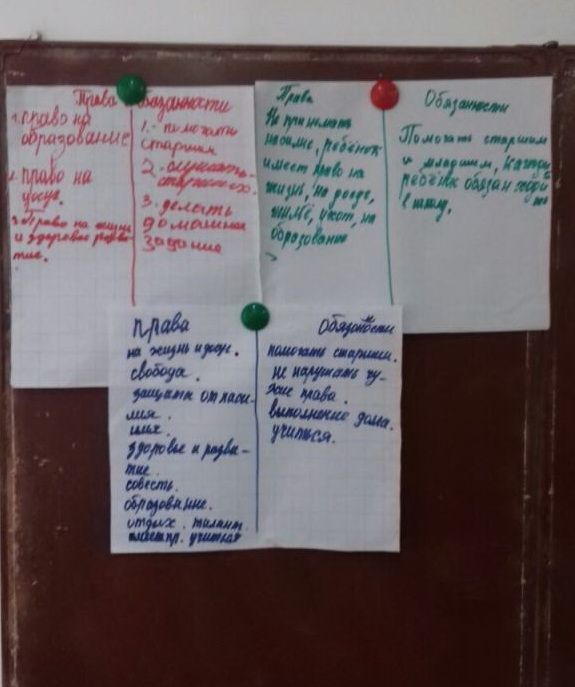 Права
Обязанности
1. право на
образование
2. право на
досуг.
3. Право на жизнь
и здоровое разви-
тие.
1.- помогать
старшим
2.- слушать
старших.
3.- делать
домашнее
задание
Права
Не принимать
насилие, ребёнок
имеет право на
жизнь, на досуг,
жильё, уют, на
образование
Обязанности
Помогать старшим
и младшим, каждый
ребёнк обязан ходи
ть
в школу.
права
на жизнь и досуг.
свобода.
защиты от наси-
лия.
имя.
здоровье и разви-
тие.
совесть.
образование.
отдых. талант
учиться
Обязоности
помогать старшим.
не нарушать чу-
жие права.
выполнение долга.
учиться.